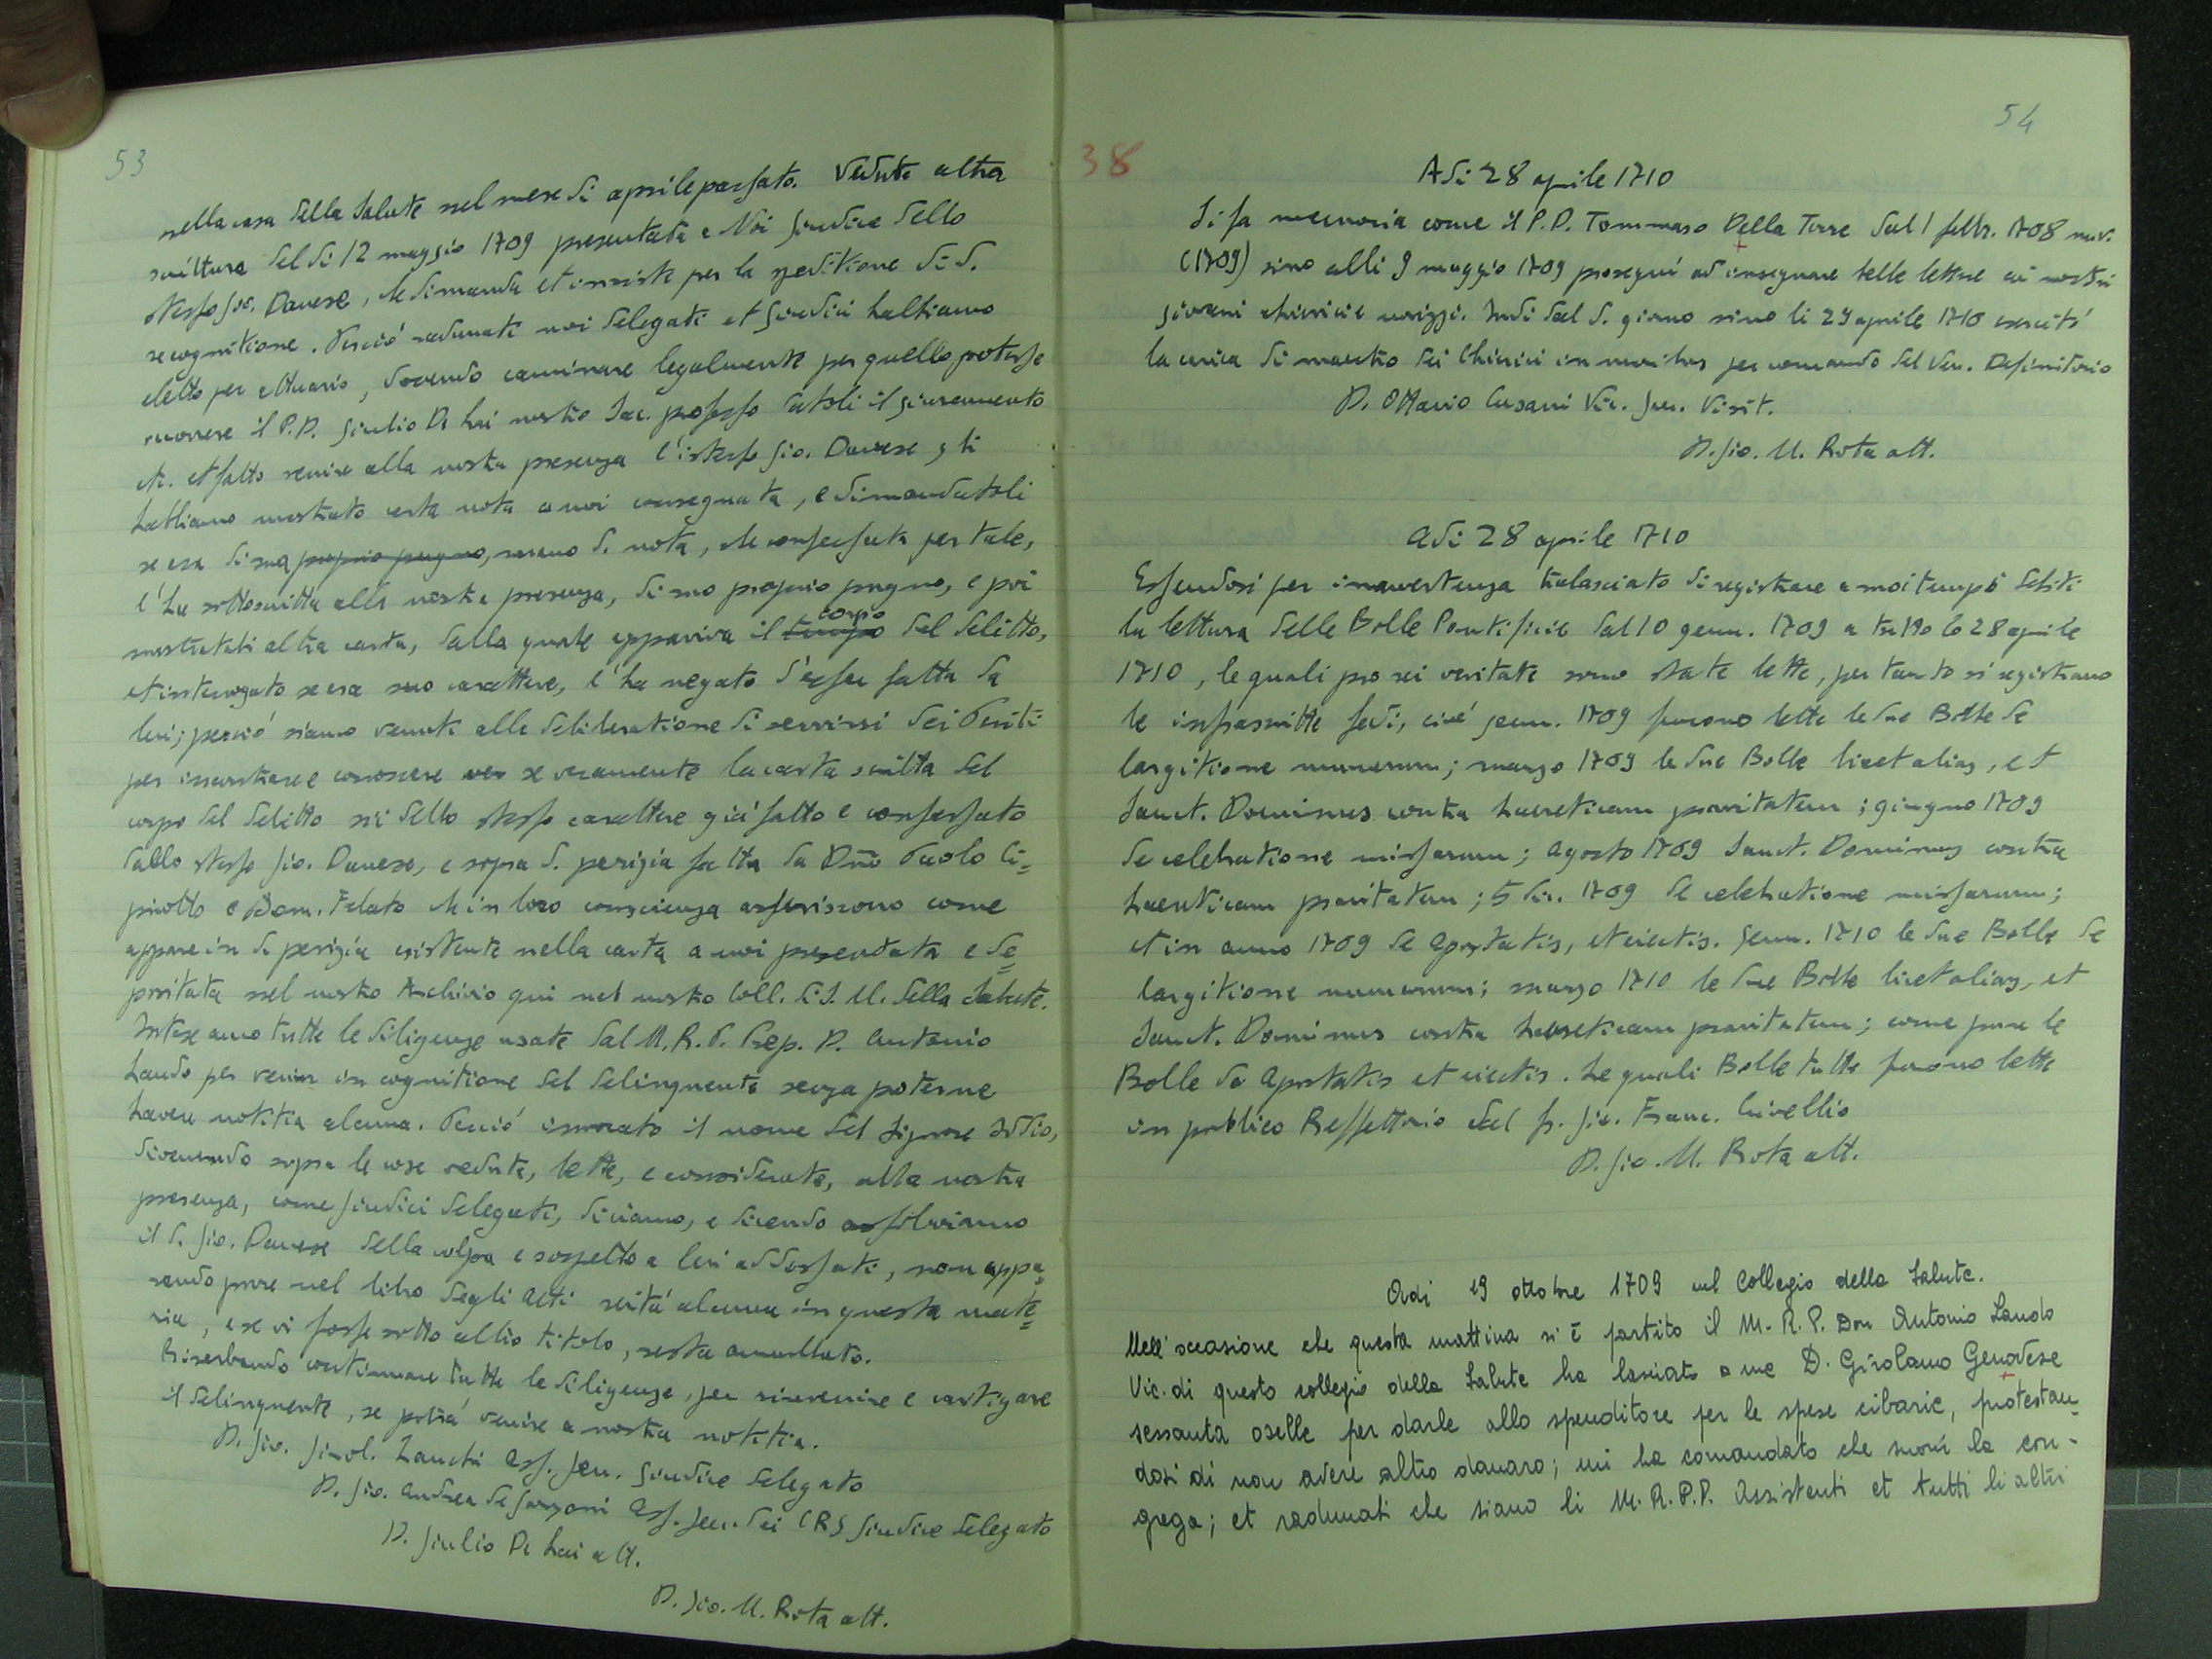 53
nella casa della Salute nel mese di aprile passato. Veduta altra
scrittura del dì 12 maggio 1709 presentata a Noi Giudice dello
stesso Gio. Danese, che dimanda et insiste per la speditione di d.
recognitione. Perciò radunati noi delegati et Giudici habbiamo
eletto per attuario, dovendo caminare legalmente per quello potesse
occorrere il P.D. Giulio De Lai nostro Sac. professo datoli il giuramento
etc. et fatto venire alla nostra presenza l'istesso Gio. Danese gli
habbiamo mostrato certa nota a noi consegnata, e dimandatoli
se era di sua proprio pugno, mano d. nota, che confessata per tale,
l'ha sottoscritta alla nostra presenza, di suo proprio pugno, e poi
mostratati altra carta, dalla quale appariva il tempo corpo del delitto,
et interrogato se era suo carattere, l'ha negato d'esser fatta da
lui; perciò siamo venuti alla deliberatione di servirsi dei Periti
per incontrare e conoscere ver se veramente la carta scritta del
corpo del delitto sii dello stesso carattere già fatto e confessato
dallo stesso Gio. Danese, e sopra d. perizia fatta da Dno Paolo Ci=
priotto e Dom. Felato che in loro conscienza asseriscono come
appare in d. perizia esistente nella carta a noi presentata e de=
positata nel nostro Archivio qui nel nostro Coll. di S. M. della Salute.
Intese anco tutte le diligenze usate dal M.R.P. Prep. D. Antonio
Lando per venir in cognitione del delinquente senza poterne
havere notitia alcuna. Perciò invocato il nome del Signore Iddio,
dicenendo sopra le cose vedute, lette, e considerate, alla nostra
presenza, come Giudici delegati, diciamo, e dicendo assolviamo
il d. Gio. Danese della colpa e sospetto a lui addossati, non appa=
rendo pure nel libro degli Atti reità alcuna in questa mate=
ria, e se vi fosse sotto altro titolo, resta annullato.
Riserbando continuare tutte le diligenze, per rinvenire e castigare
il delinquente, se potrà venire a nostra notitia.
D. Gio. Girol. Zanchi Ass. Gen. Giudice delegato
D. Gio. Andrea de Garzoni Ass. Gen. dei CRS Giudice delegato
D. Giulio De Lai att.
D. Gio. M. Rota att.
38
54
Adi 28 aprile 1710
Si fa memoria come il P.D. Tommaso Della Torre dal 1 febbr. 1708 m.v.
(1709) sino alli 9 maggio 1709 proseguì ad insegnare belle lettere ai nostri
giovani chierici e novizzi. Indi dal d. giorno sino li 29 aprile 1710 esercitò
la carica di maestro dei Chierici in moribus per comando del Ven. Definitorio
D. Ottavio Cusani Vic. Gen. Visit.
D. Gio. M. Rota att.
Adi 28 aprile 1710
Essendosi per inavvertenza tralasciato di registrare a suoi tempi debiti
la lettura delle Bolle Pontificie dal 10 genn. 1709 a tutto lo 28 aprile
1710, le quali pro rei veritate sono state lette, per tanto si registrano
le infrascritte fedi, cioé genn. 1709 furono lette le due Bolle de
largitione munerum; marzo 1709 le due Bolle licet alias, et
Sanct. Dominus contra haereticam pravitatem; giugno 1709
de celebratione missarum; agosto 1709 Sanct. Dominus contra
haereticam pravitatem; 5 dic. 1709 de celebratione missarum;
et in anno 1709 de Apostatis, et eiectis. Genn. 1710 le due Bolle de
largitione munerum; marzo 1710 le due Bolle licet alias, et
Sanct. Dominus contra haereticam pravitatem; come pure le
Bolle de Apostatis et eiectis. Le quali Bolle tutte furono lette
in publico Reffettorio del fr. Gio. Franc. Civellio
D. Gio. M. Rota att.
Adi 19 ottobre 1709 nel Collegio della Salute.
Nell'occasione che questa mattina si è partito il M. R. P. Don Antonio Lando
Vic. di questo collegio della Salute ha lasciato a me D. Girolamo Genovese
sessanta oselle per darle allo spenditore per le spese cibarie, protestan=
dosi di non avere altro danaro; mi ha comandato che suoni la con-
grega; et radunati che siano li M. R. P. P. Assistenti et tutti li altri